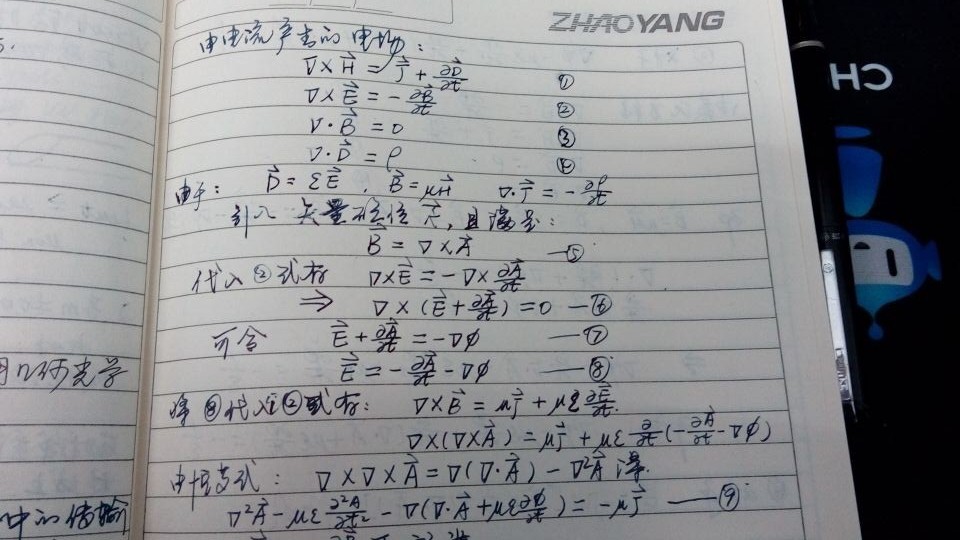 ZHAOYANG
CH
由电流产生的电场:
∇×H⃗ = J⃗ + ∂D⃗/∂t ①
∇×E⃗ = -∂B⃗/∂t ②
∇·B⃗ = 0 ③
∇·D⃗ = ρ ④
由于: D⃗ = εE⃗, B⃗ = μH⃗ ∇·J⃗ = -∂ρ/∂t
引入矢量磁位A⃗, 且满足:
B⃗ = ∇×A⃗ —⑤
代入②式有 ∇×E⃗ = -∇×∂A⃗/∂t
⇒ ∇×(E⃗+∂A⃗/∂t) = 0 —⑥
可令 E⃗+∂A⃗/∂t = -∇φ —⑦
E⃗ = -∂A⃗/∂t - ∇φ —⑧
将⑧代入②式有: ∇×B⃗ = μJ⃗ + με∂E⃗/∂t.
∇×(∇×A⃗) = μJ⃗ + με ∂/∂t(-∂A⃗/∂t - ∇φ)
由恒等式: ∇×∇×A⃗ = ∇(∇·A⃗) - ∇²A⃗ 得.
∇²A⃗ - με∂²A/∂t² - ∇(∇·A⃗+με∂φ/∂t) = -μJ⃗ —⑨
几何光学
中的传输